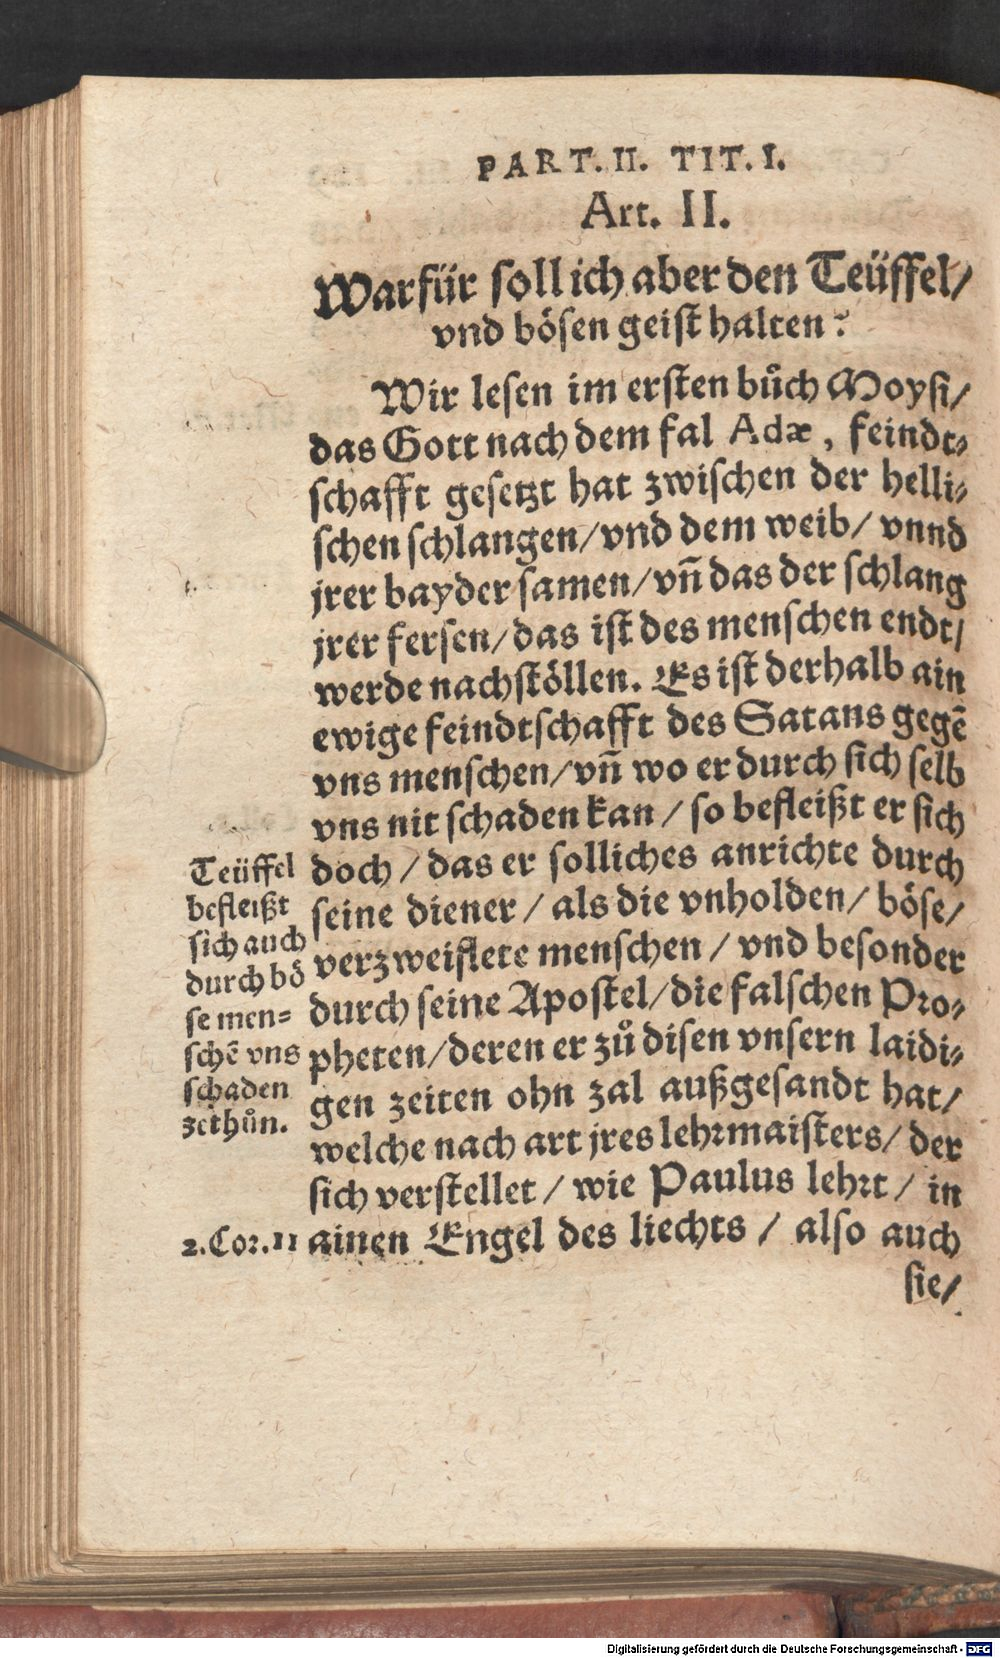 PART. II. TIT. I.
Art. II.
Warfür soll ich aber den Teüffel/
vnd bösen geist halten?
Wir lesen im ersten bůch Moysi/
das Gott nach dem fal Adæ, feindt⸗
schafft gesetzt hat zwischen der helli⸗
schen schlangen/ vnd dem weib/ vnnd
jrer bayder samen/ vñ das der schlang
jrer fersen/ das ist des menschen endt/
werde nachstöllen. Es ist derhalb ain
ewige feindtschafft des Satans gegē
vns menschen/ vñ wo er durch sich selb
vns nit schaden kan / so befleißt er sich
doch / das er solliches anrichte durch
seine diener / als die vnholden/ böse/
verzweiflete menschen / vnd besonder
durch seine Apostel/ die falschen Pro⸗
pheten/ deren er zů disen vnsern laidi⸗
gen zeiten ohn zal außgesandt hat/
welche nach art jres lehrmaisters/ der
sich verstellet / wie Paulus lehrt / in
ainen Engel des liechts / also auch
sie/
Teüffel
befleißt
sich auch
durch bö
se men⸗
schē vns
schaden
zethůn.
2. Cor. 11
Digitalisierung gefördert durch die Deutsche Forschungsgemeinschaft - DFG